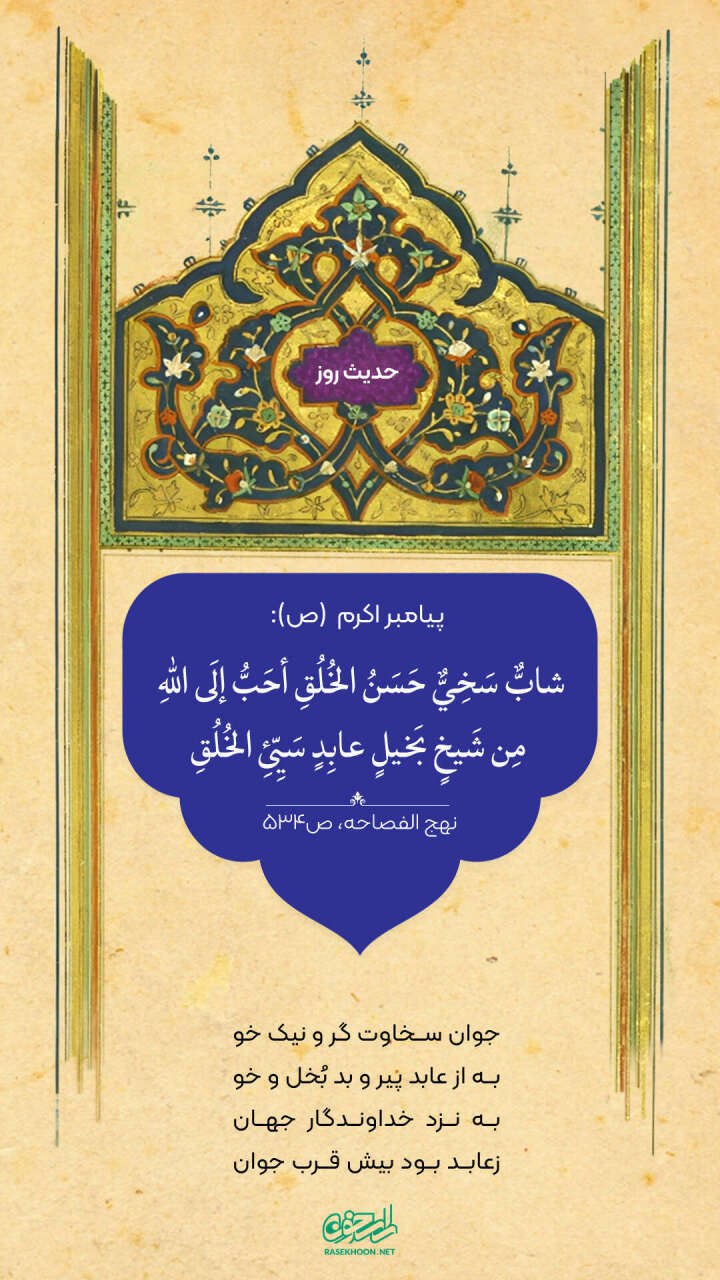 حدیث روز
پیامبر اکرم (ص):
شابٌّ سَخِيٌّ حَسَنُ الخُلُقِ أحَبُّ إلَى اللهِ
مِن شَيخٍ بَخيلٍ عابِدٍ سَيِّئِ الخُلُقِ
نهج الفصاحه، ص۵۳۴
جوان سـخاوت گر و نیک خو
بـه از عابد پیر و بد بُخل و خو
بـه نـزد خداونـدگار جهـان
زعابـد بـود بیش قـرب جوان
راسخون
RASEKHOON.NET